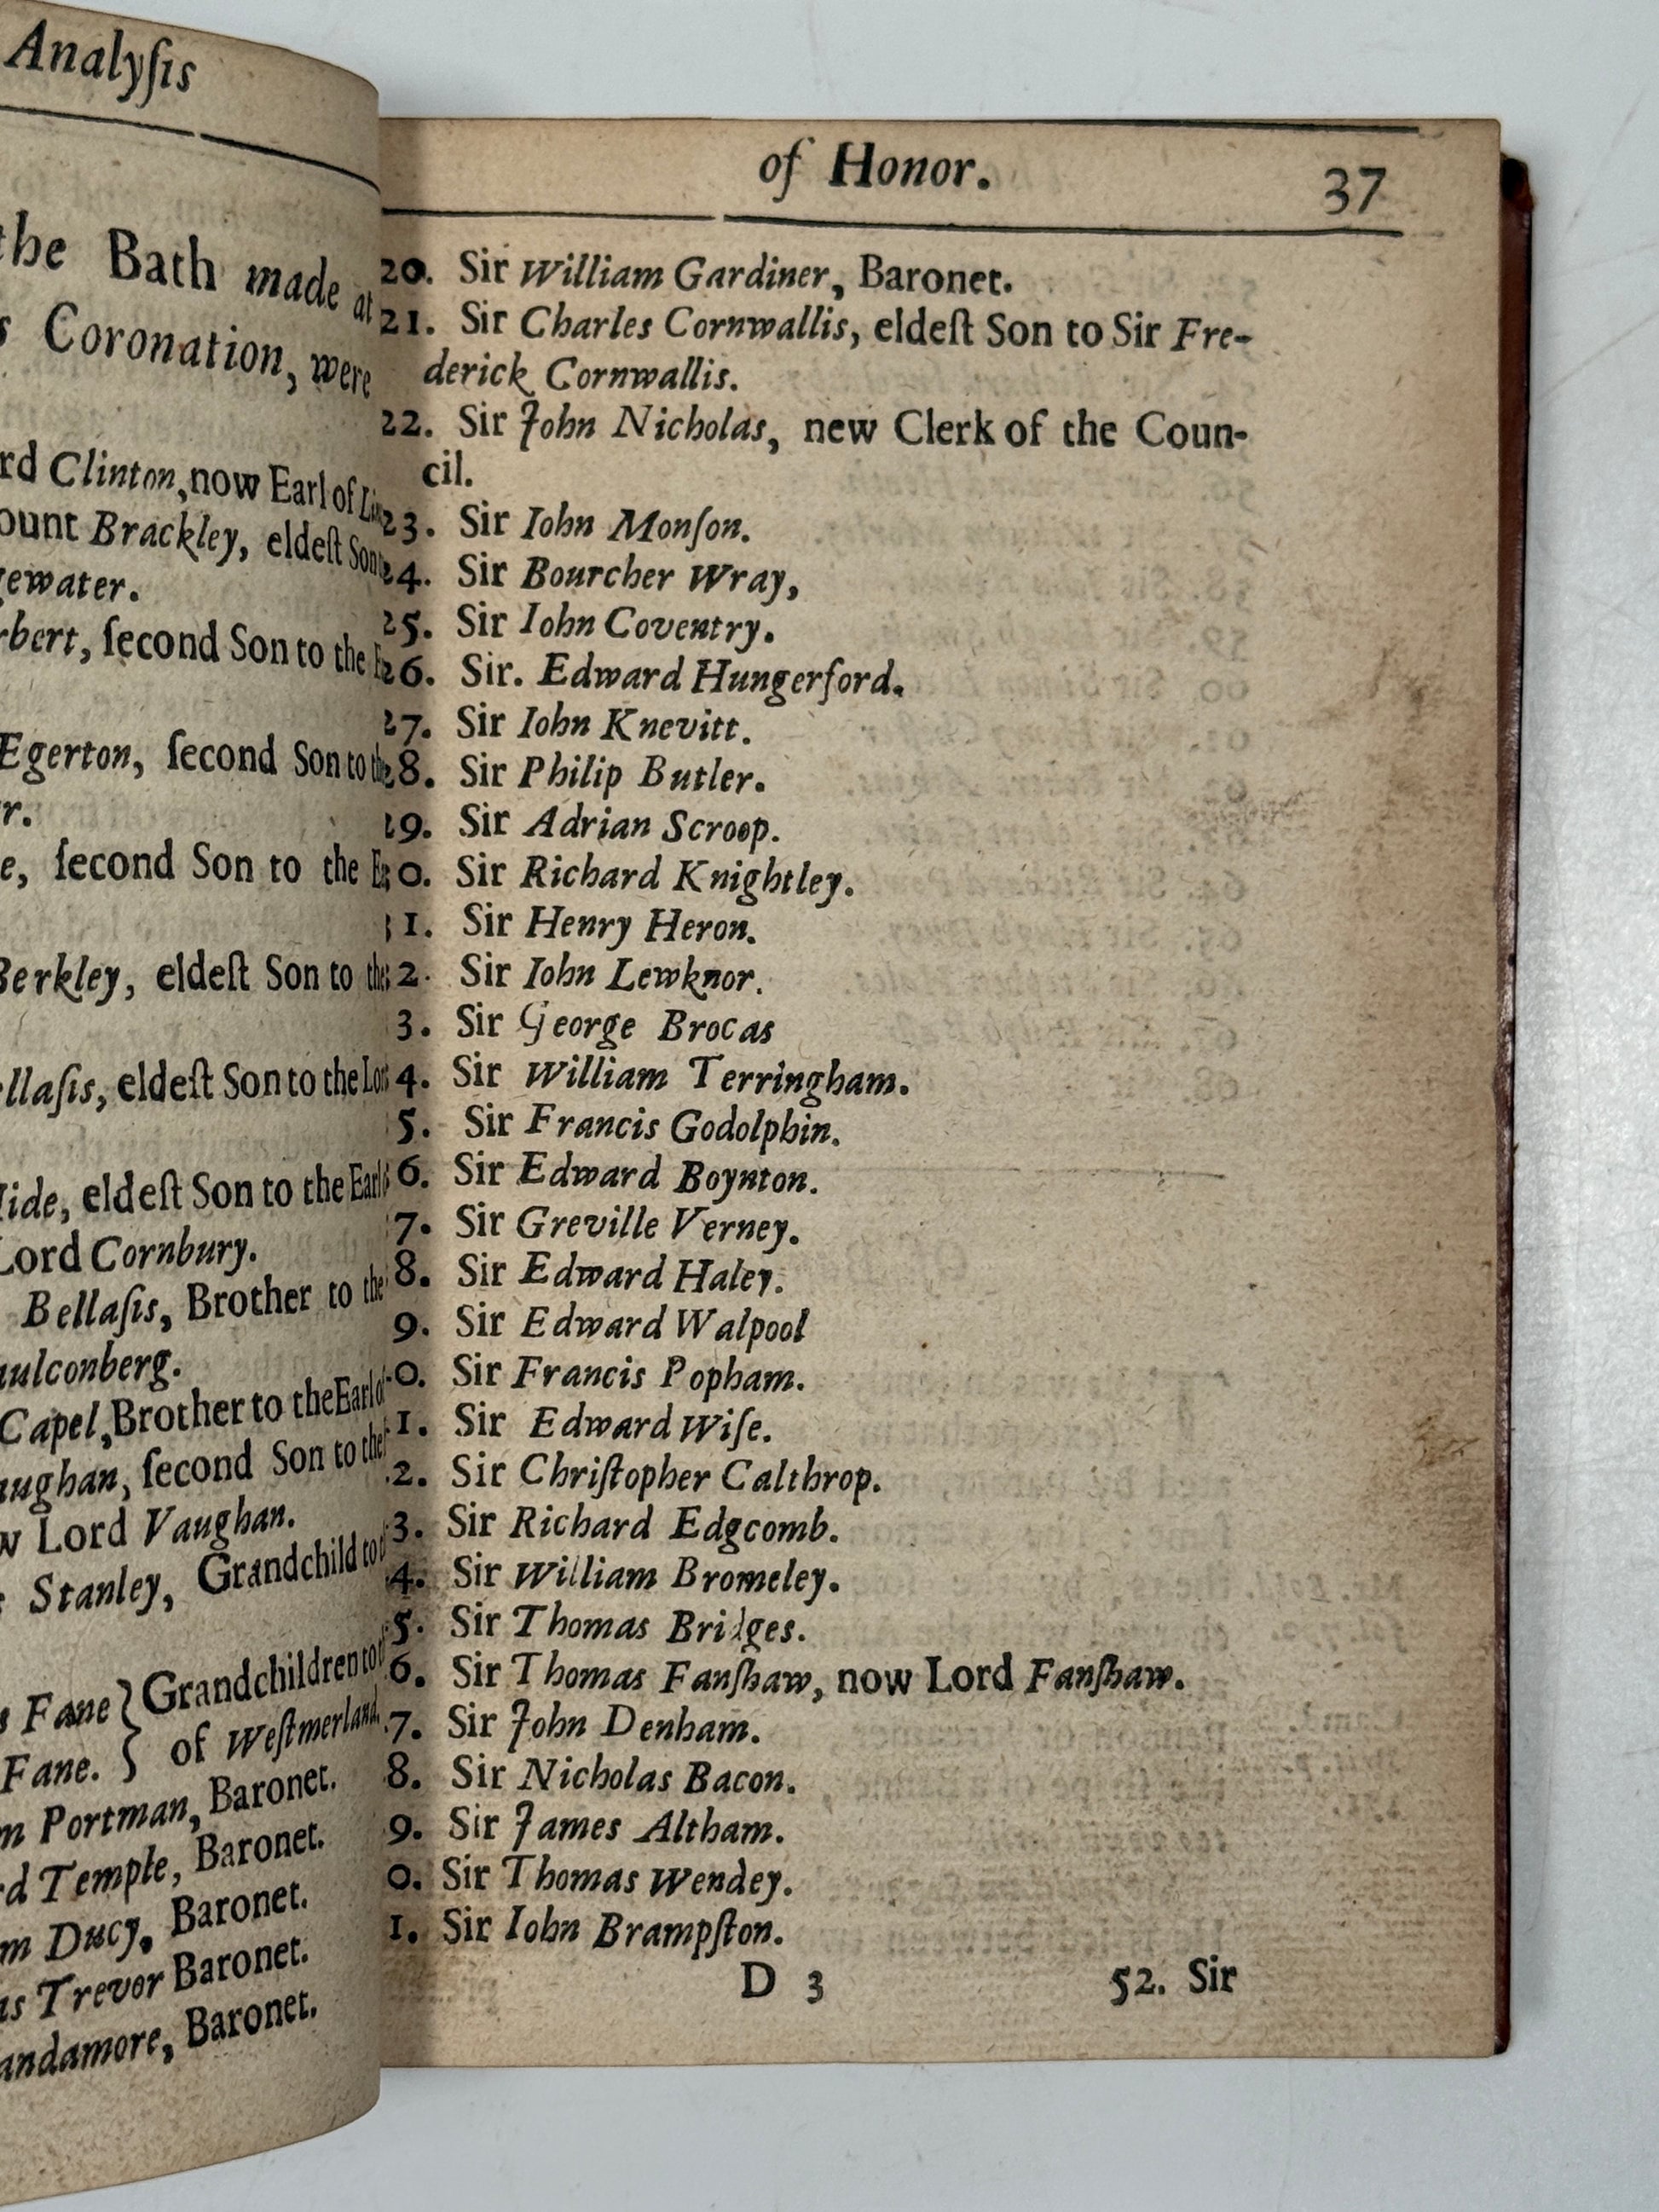 Analyſis
the Bath made at
Coronation, were
Clinton, now Earl of
Brackley, eldeſt Son
ſecond Son to the
Egerton, ſecond Son to the
ſecond Son to the
Berkley, eldeſt Son to the
eldeſt Son to the
eldeſt Son to the Earl
Lord Cornbury.
Bellaſis, Brother to the
Capel, Brother to the Earl
ſecond Son to the
Lord Vaughan.
Stanley, Grandchild to
Fane } Grandchildren to
Fane. } of Weſtmerland
Portman, Baronet.
Temple, Baronet.
Ducy, Baronet.
Trevor Baronet.
Baronet.
of Honor. 37
20. Sir William Gardiner, Baronet.
21. Sir Charles Cornwallis, eldeſt Son to Sir Fre-
derick Cornwallis.
22. Sir John Nicholas, new Clerk of the Coun-
cil.
23. Sir Iohn Monſon.
24. Sir Bourcher Wray,
25. Sir Iohn Coventry.
26. Sir. Edward Hungerford.
27. Sir Iohn Knevitt.
28. Sir Philip Butler.
29. Sir Adrian Scroop.
0. Sir Richard Knightley.
1. Sir Henry Heron.
2. Sir Iohn Lewknor.
3. Sir George Brocas
4. Sir William Terringham.
5. Sir Francis Godolphin.
6. Sir Edward Boynton.
7. Sir Greville Verney.
8. Sir Edward Haley.
9. Sir Edward Walpool
0. Sir Francis Popham.
1. Sir Edward Wiſe.
2. Sir Chriſtopher Calthrop.
3. Sir Richard Edgcomb.
4. Sir William Bromeley.
5. Sir Thomas Bridges.
6. Sir Thomas Fanſhaw, now Lord Fanſhaw.
7. Sir John Denham.
8. Sir Nicholas Bacon.
9. Sir James Altham.
0. Sir Thomas Wendey.
1. Sir Iohn Brampſton.
D 3 52. Sir